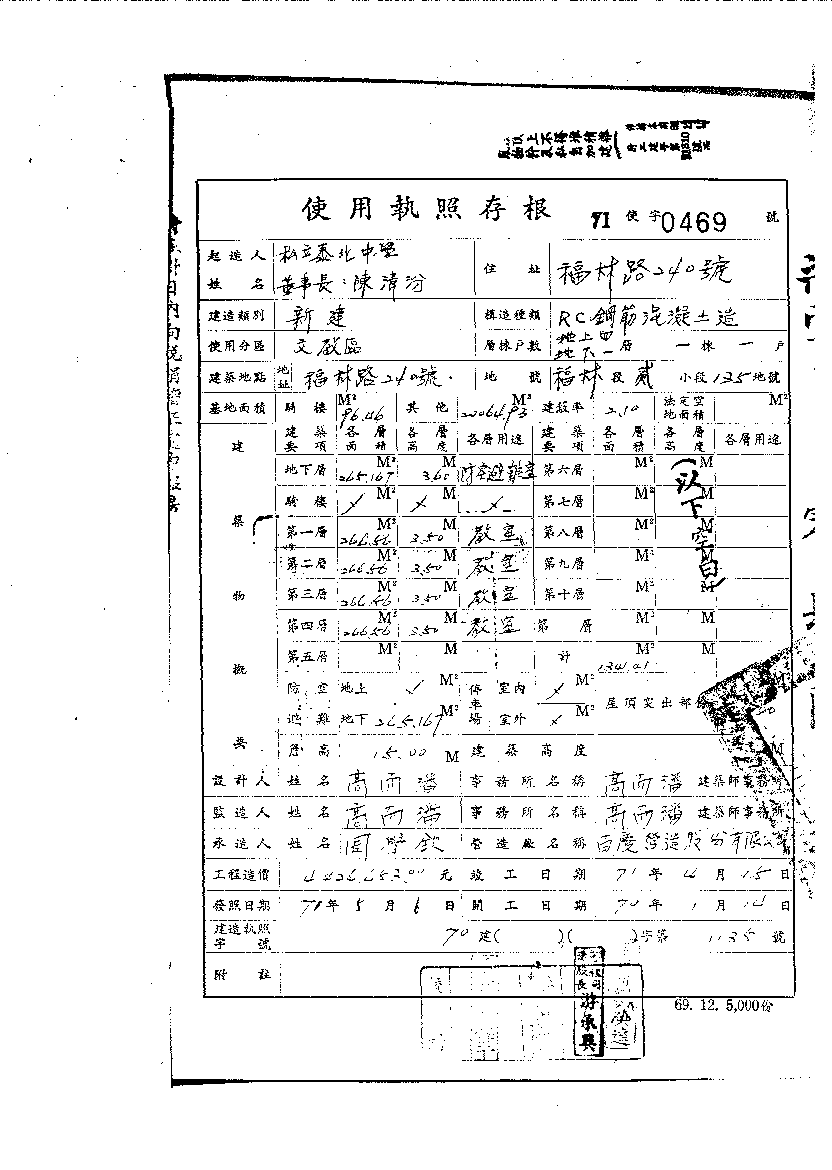 使用執照存根 71 使字0469號
起造人姓名 私立泰北中學 董事長:陳清汾 住址 福林路240號
建造類別 新建 構造種類 RC鋼筋混凝土造
使用分區 文教區 層棟戶數 地上四 地下一 層 一棟 一戶
建築地點 地址 福林路240號. 地號 福林段貳小段135地號
基地面積 騎樓 96.46 M² 其他 M² 建蔽率 2.10 法定空地面積 M²
建築物概要 建築要項 各層面積 各層高度 各層用途 建築要項 各層面積 各層高度 各層用途
地下層 265.167 M² 3.60 M 防空避難室 第六層 M² M
(以下空白)
騎樓 M² M 第七層 M² M
第一層 266.56 M² 3.50 M 教室 第八層 M² M
第二層 266.56 M² 3.50 M 教室 第九層 M² M
第三層 266.56 M² 3.50 M 教室 第十層 M² M
第四層 266.56 M² 3.50 M 教室 第 層 M² M
第五層 M² M 計 M² M
防空避難 地上 M² 停車場 室內 M² 屋頂突出部份
地下 265.167 M² 室外 M²
簷高 15.00 M 建築高度 M
設計人 姓名 高而潘 事務所名稱 高而潘 建築師事務所
監造人 姓名 高而潘 事務所名稱 高而潘 建築師事務所
承造人 姓名 周學欽 營造廠名稱 百慶營造股份有限公
工程造價 元 竣工日期 71年4月15日
發照日期 71年5月6日 開工日期 70年1月14日
建造執照字號 70建( )( )字第1135號
附註
游承興
69. 12. 5,000份